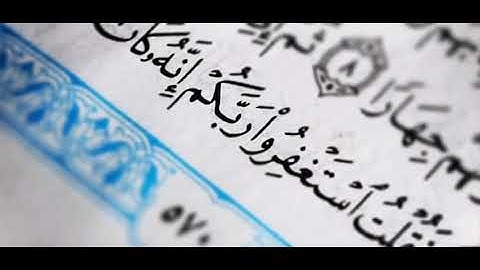 ثم
جِهَارًا ٨
فَقُلْتُ ٱسْتَغْفِرُوا۟ رَبَّكُمْ إِنَّهُۥ كَانَ
٥٧٠